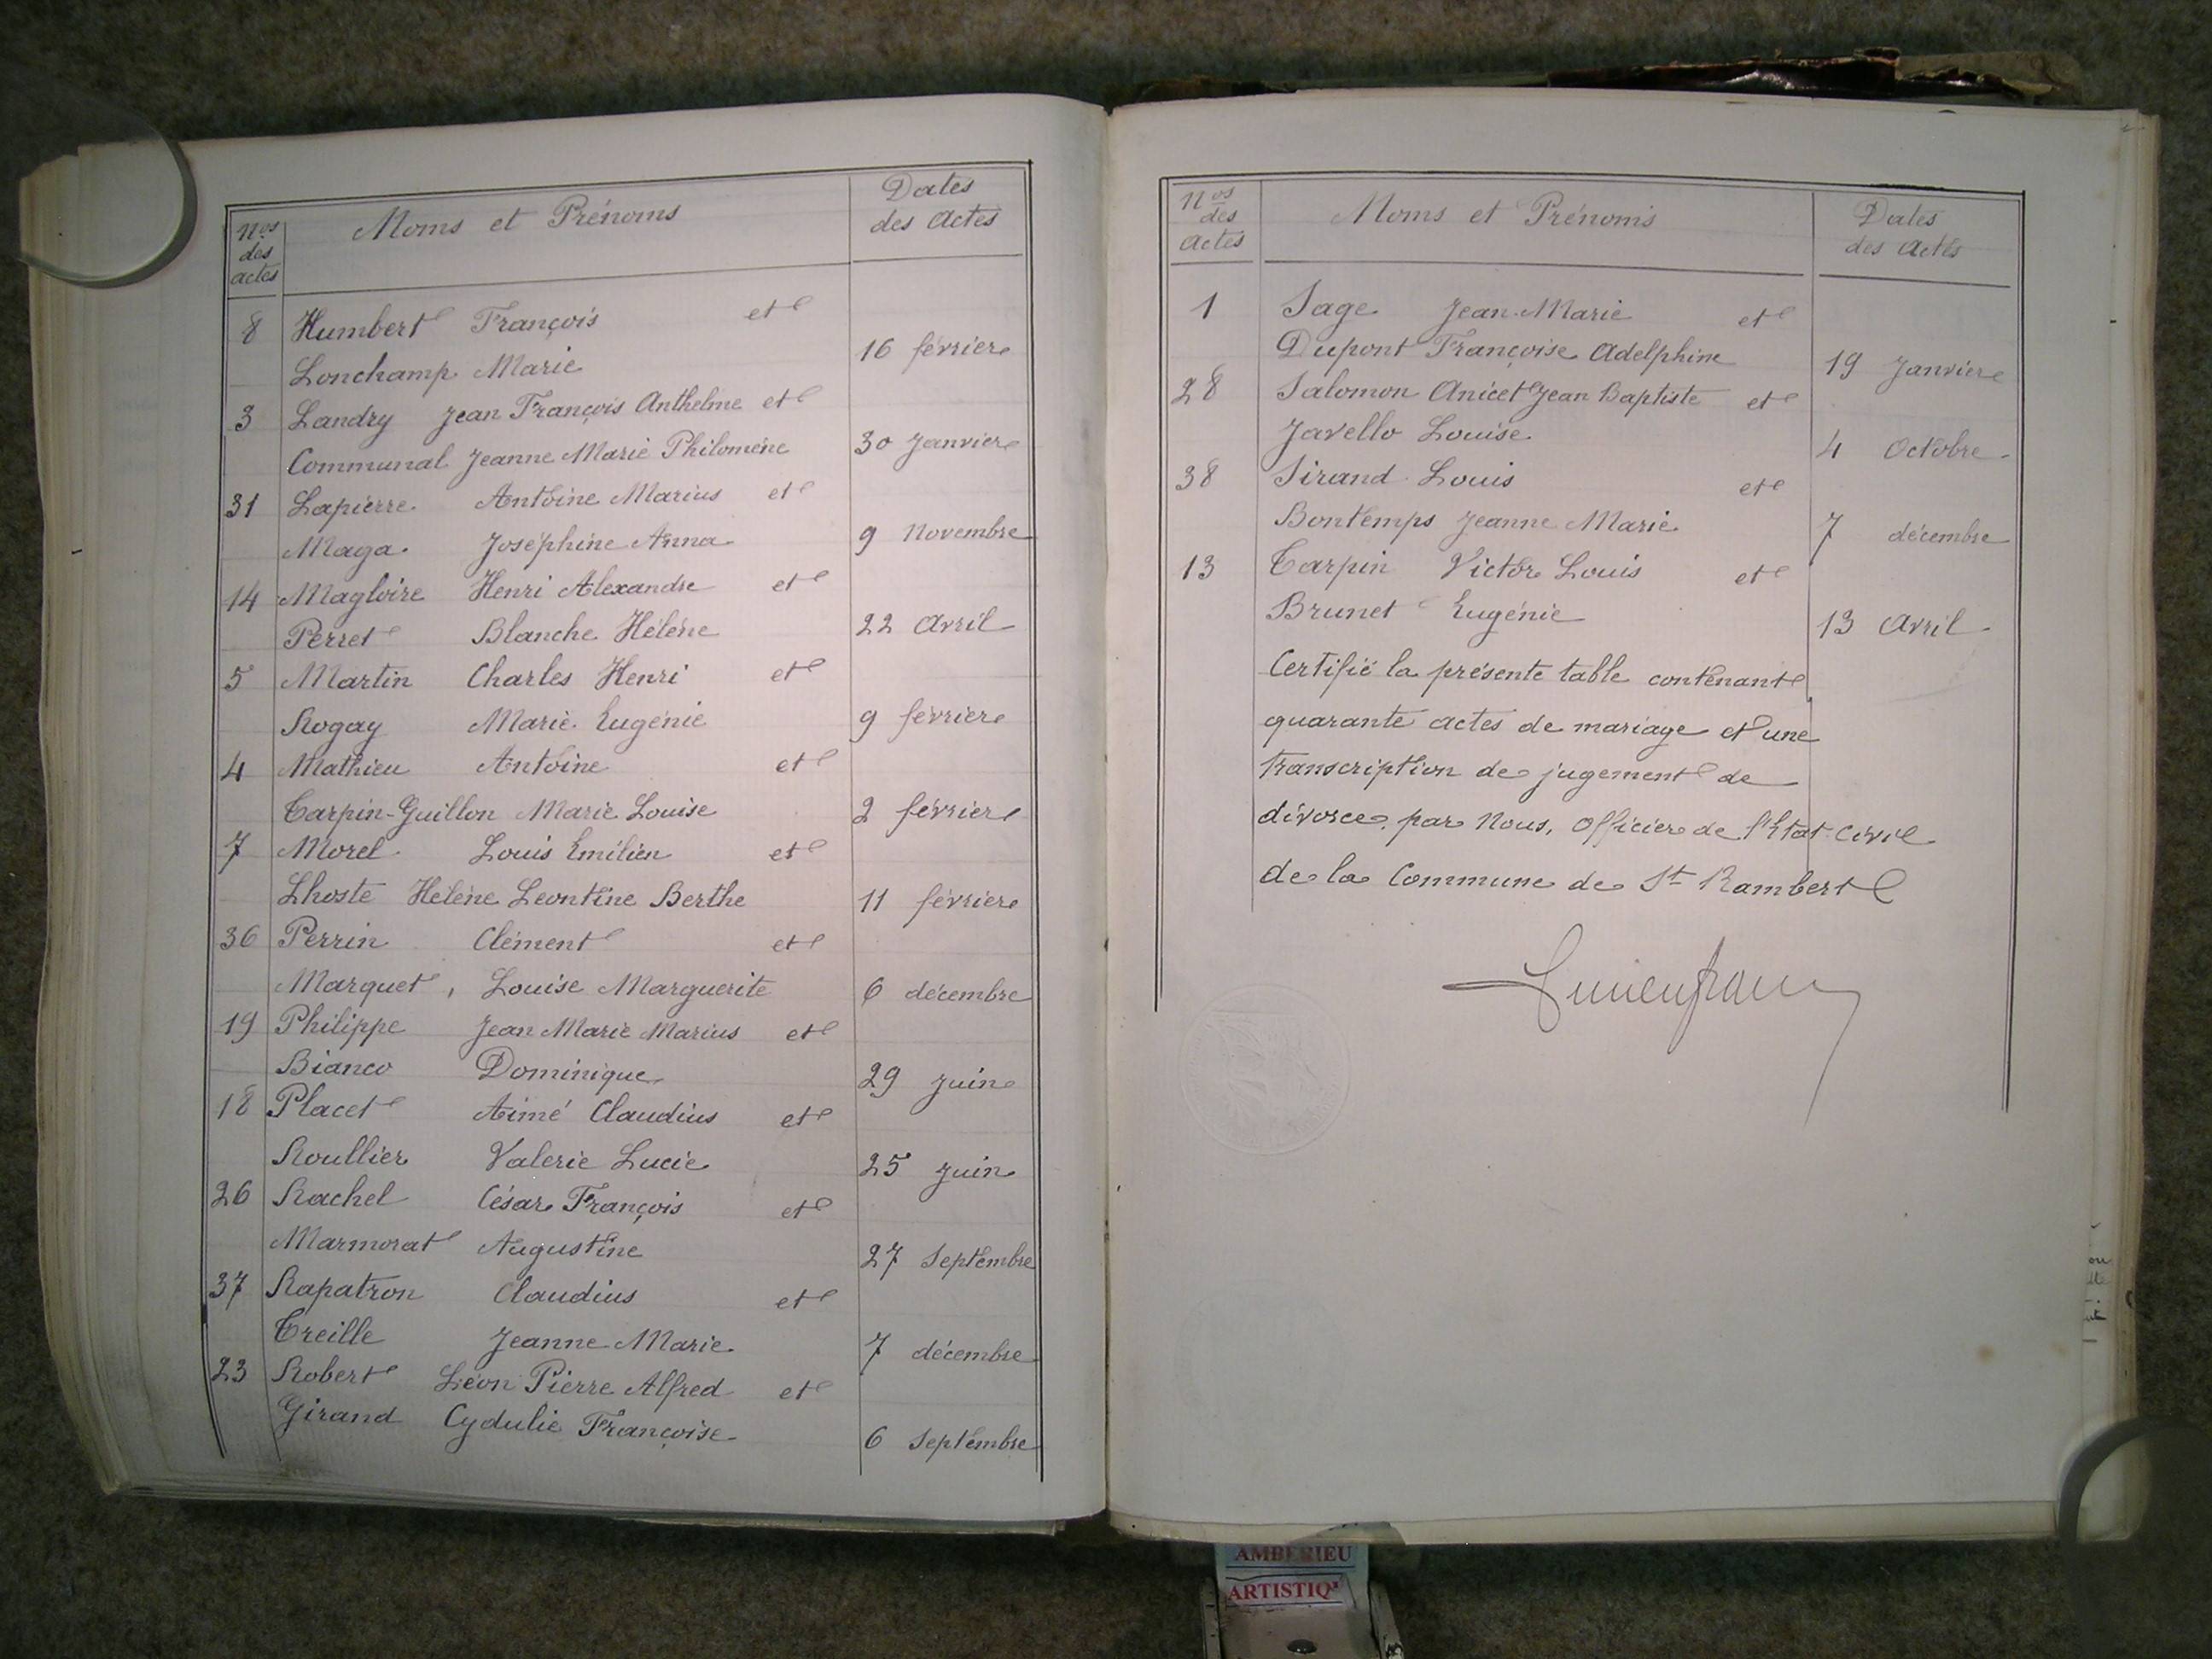 Nos
des
actes
Noms et Prénoms
Dates
des Actes
8 Humbert François et
Lonchamp Marie 16 février
3 Landry Jean François Anthelme et
Communal Jeanne Marie Philomène 30 Janvier
31 Lapierre Antoine Marius et
Maga Joséphine Anna 9 Novembre
14 Magloire Henri Alexandre et
Perret Blanche Hélène 22 Avril
5 Martin Charles Henri et
Rogay Marie Eugénie 9 février
4 Mathieu Antoine et
Carpin-Guillon Marie Louise 2 février
7 Morel Louis Emilien et
Lhoste Hélène Léontine Berthe 11 février
36 Perrin Clément et
Marquet, Louise Marguerite 6 décembre
19 Philippe Jean Marie Marius et
Bianco Dominique 29 Juin
18 Placet Aimé Claudius et
Roullier Valerie Lucie 25 Juin
26 Rachel César François et
Marmorat Augustine 27 Septembre
37 Rapatron Claudius et
Treille Jeanne Marie 7 décembre
23 Robert Léon Pierre Alfred et
Girand Cydulie Françoise 6 Septembre
Nos
des
Actes
Noms et Prénoms
Dates
des Actes
1 Sage Jean-Marie et
Dupont Françoise Adelphine 19 Janvier
28 Salomon Anicet Jean Baptiste et
Javello Louise 4 Octobre
38 Sirand Louis et
Bontemps Jeanne Marie 7 décembre
13 Carpin Victor Louis et
Brunet Eugénie 13 Avril
Certifié la présente table contenant
quarante actes de mariage et une
transcription de jugement de
divorce, par Nous, Officier de l'Etat-Civil
de la Commune de St Rambert
AMBERIEU
ARTISTIQ